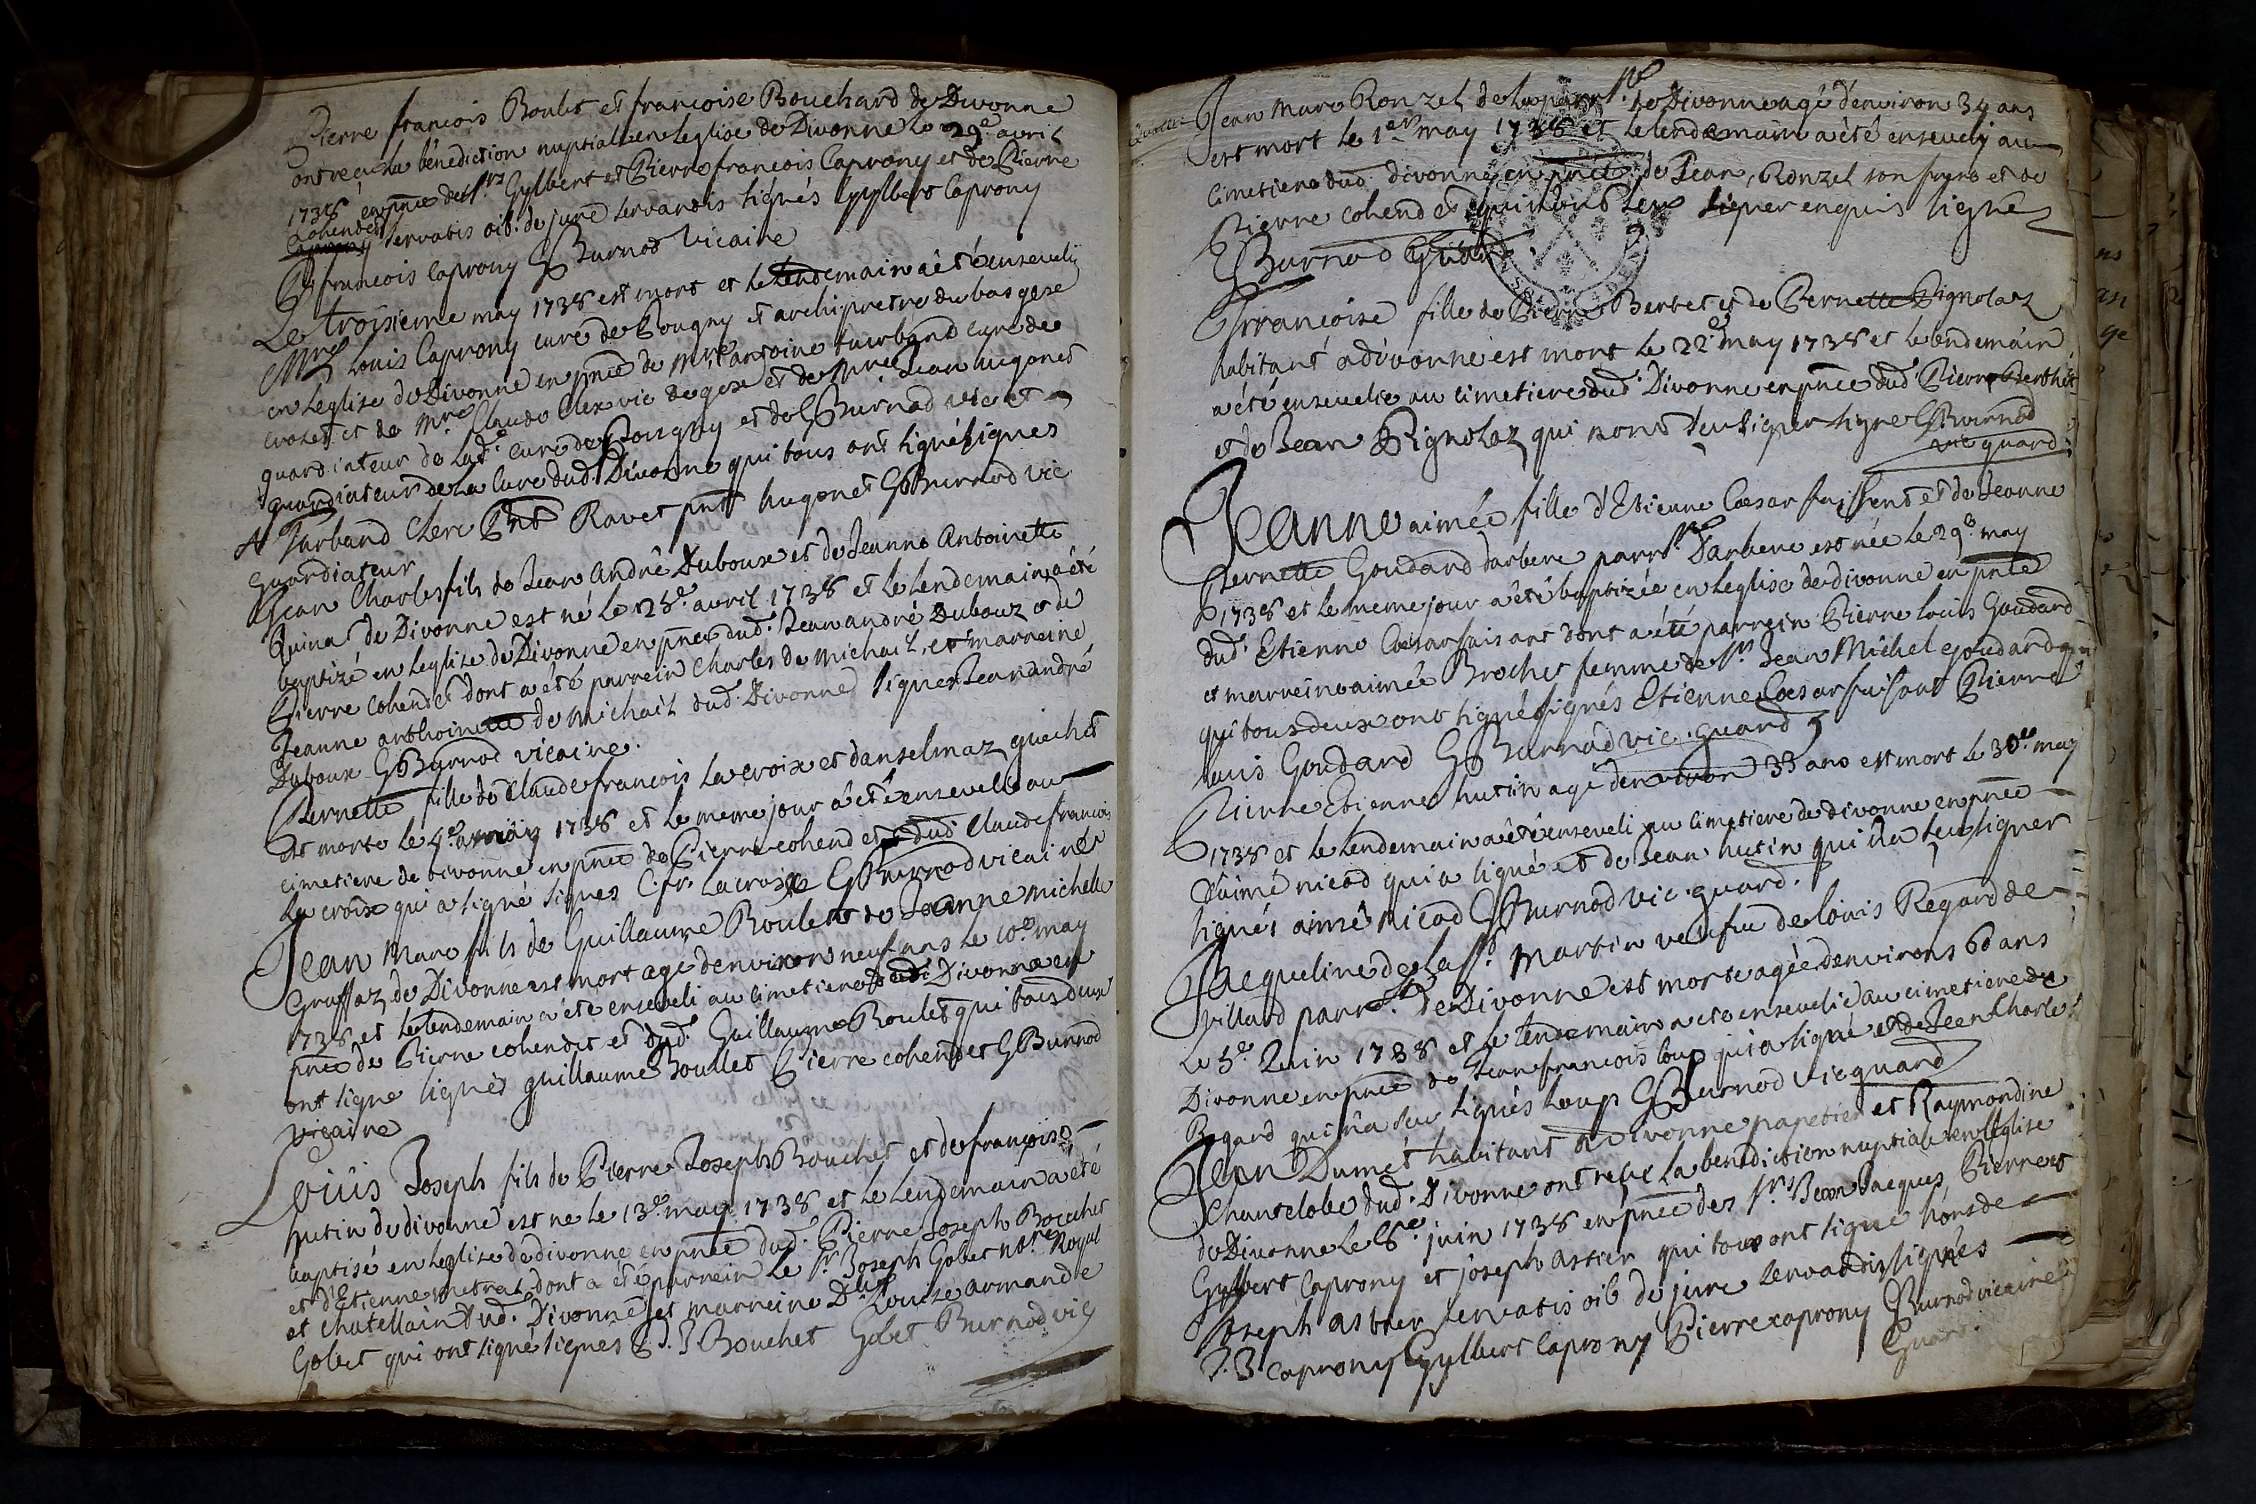 Pierre francois Boulet et francoise Bouchard de Divonne
ont reçu la bénediction nuptiale en leglise de Divonne le 29e avril
1738 en pnce des Srs Gylbert et Pierre francois Caprony et de Pierre
Cohendet servatis oib. de jure servandis signés Gylbert Caprony
P francois Caprony GBurnod Vicaire
Le troisieme may 1738 est mort et le lendemain a été enseveli
Mre Louis Caprony curé de Pougny et archipretre du bas gex
en leglise de Divonne en pnce de Mre antoine turband curé de
crozet et de Mre Claude Clerc vic de gex et de Mre Jean hugonet
guardiateur de lad. cure de Pougny et de GBurnod vic et
guardiateur de la Cure dud. Divonne qui tous ont signé signes
A Turband Clerc Ravet pnt hugonet GBurnod vic
guardiateur
Jean Charles fils de Jean André Duboux et de Jeanne Antoinette
Quina de Divonne est né le 25e avril 1738 et le lendemain a été
baptizé en leglize de Divonne en pnce dud. Jean andré Duboux & de
Pierre Cohendet dont a été parrein Charles de Michail, et marreine
Jeanne anthoinette de Michail dud. Divonne signes Jean andré
Duboux GBurnod vicaire.
Pernette fille de Claude francois Lacroix et danselmaz guichet
est morte le 4e may 1738 et le meme jour a été ensevelie au
cimetiere de divonne en pnce de Pierre cohendet & dud. Claude francois
Lacroix qui a signé signes C. fr. Lacroix GBurnod vicaire
Jean Marc fils de Guillaume Boulet et de Jeanne michelle
Gruffaz de Divonne est mort agé denviron neuf ans le 10e may
1738 et le lendemain a été enseveli au cimetiere dud. Divonne en
pnce de Pierre cohendet et dud. Guillaume Boulet qui tous deux
ont signe signés guillaume Boullet Pierre cohendet GBurnod
vicaire
Louis Joseph fils de Pierre Joseph Bouchet et de françoise
hutin de divonne est né le 13e may 1738 et le lendemain a été
baptisé en leglize de divonne en pnce dud. Pierre Joseph Bouchet
et d'Etienne metral dont a été parrein Le Sr Joseph Gobet notre Royal
et chatellain dud. Divonne et marreine Dlle Louise armande
Gobet qui ont signé signes P. J Bouchet Gobet Burnod vic
Jean Marc Ronzel de la parrsse de Divonne agé d'environ 34 ans
est mort le 1er may 1738 et le lendemain a été enseveli au
Cimetiere dud. divonne en pnce de Jean Ronzel son frere et de
Pierre cohendet qui nont seu signer enquis signé
GBurnod Guard
Francoise fille de Pierre Berthet et de Pernette Pignolaz
habitant a divonne est mort le 22e may 1738 et le lendemain
a été ensevelie au cimetiere dud. Divonne en pnce dud. Pierre Berthet
et de Jean Pignolaz qui nont seu signer signe GBurnod
vic guard.
Jeanne aimée fille d'Etienne Cæsar faissant et de Jeanne
Pernette Goudard darbere parrsse Darbere est née le 29e may
1738 et le meme jour a été baptizée en leglise de divonne en pnce
dud. Etienne Cæsar faisant dont a été parrein Pierre Louis Goudard
et marreine aimée Brochet femme de Sr Jean Michel goudard
qui tous deux ont signé signés Etienne Cæsar faisant Pierre
Louis Goudard GBurnod vic. guard
Pierre Etienne hutin agé denviron 33 ans est mort le 30e may
1738 et le lendemain a été enseveli au cimetiere de divonne en pnce
d'aimé nicod qui a signé et de Jean hutin qui na seu signer
signés aimé Nicod GBurnod vic. guard.
Jacqueline de Martin veufve de louis Regard de
villard parrsse de Divonne est morte agée denvirons 60 ans
Le 5e Juin 1738 et le lendemain a été ensevelie au cimetiere de
Divonne en pnce de Jean francois loup qui a signé et de Jean Charle
Regard qui na seu signés Loup GBurnod vic guard
Jean Dumet habitant a Divonne papetier et Raymondine
Chanteloube dud. Divonne ont reçu la benediction nuptiale en leglise
de Divonne le 6e juin 1738 en pnce des Srs Jean Jacques, Pierre et
Gylbert Caprony et joseph astier qui tous ont signe hors de
Joseph astier servatis oib de jure servandis signés
J. J. Caprony Gylbert Caprony Pierre caprony GBurnod vicaire
Guard.